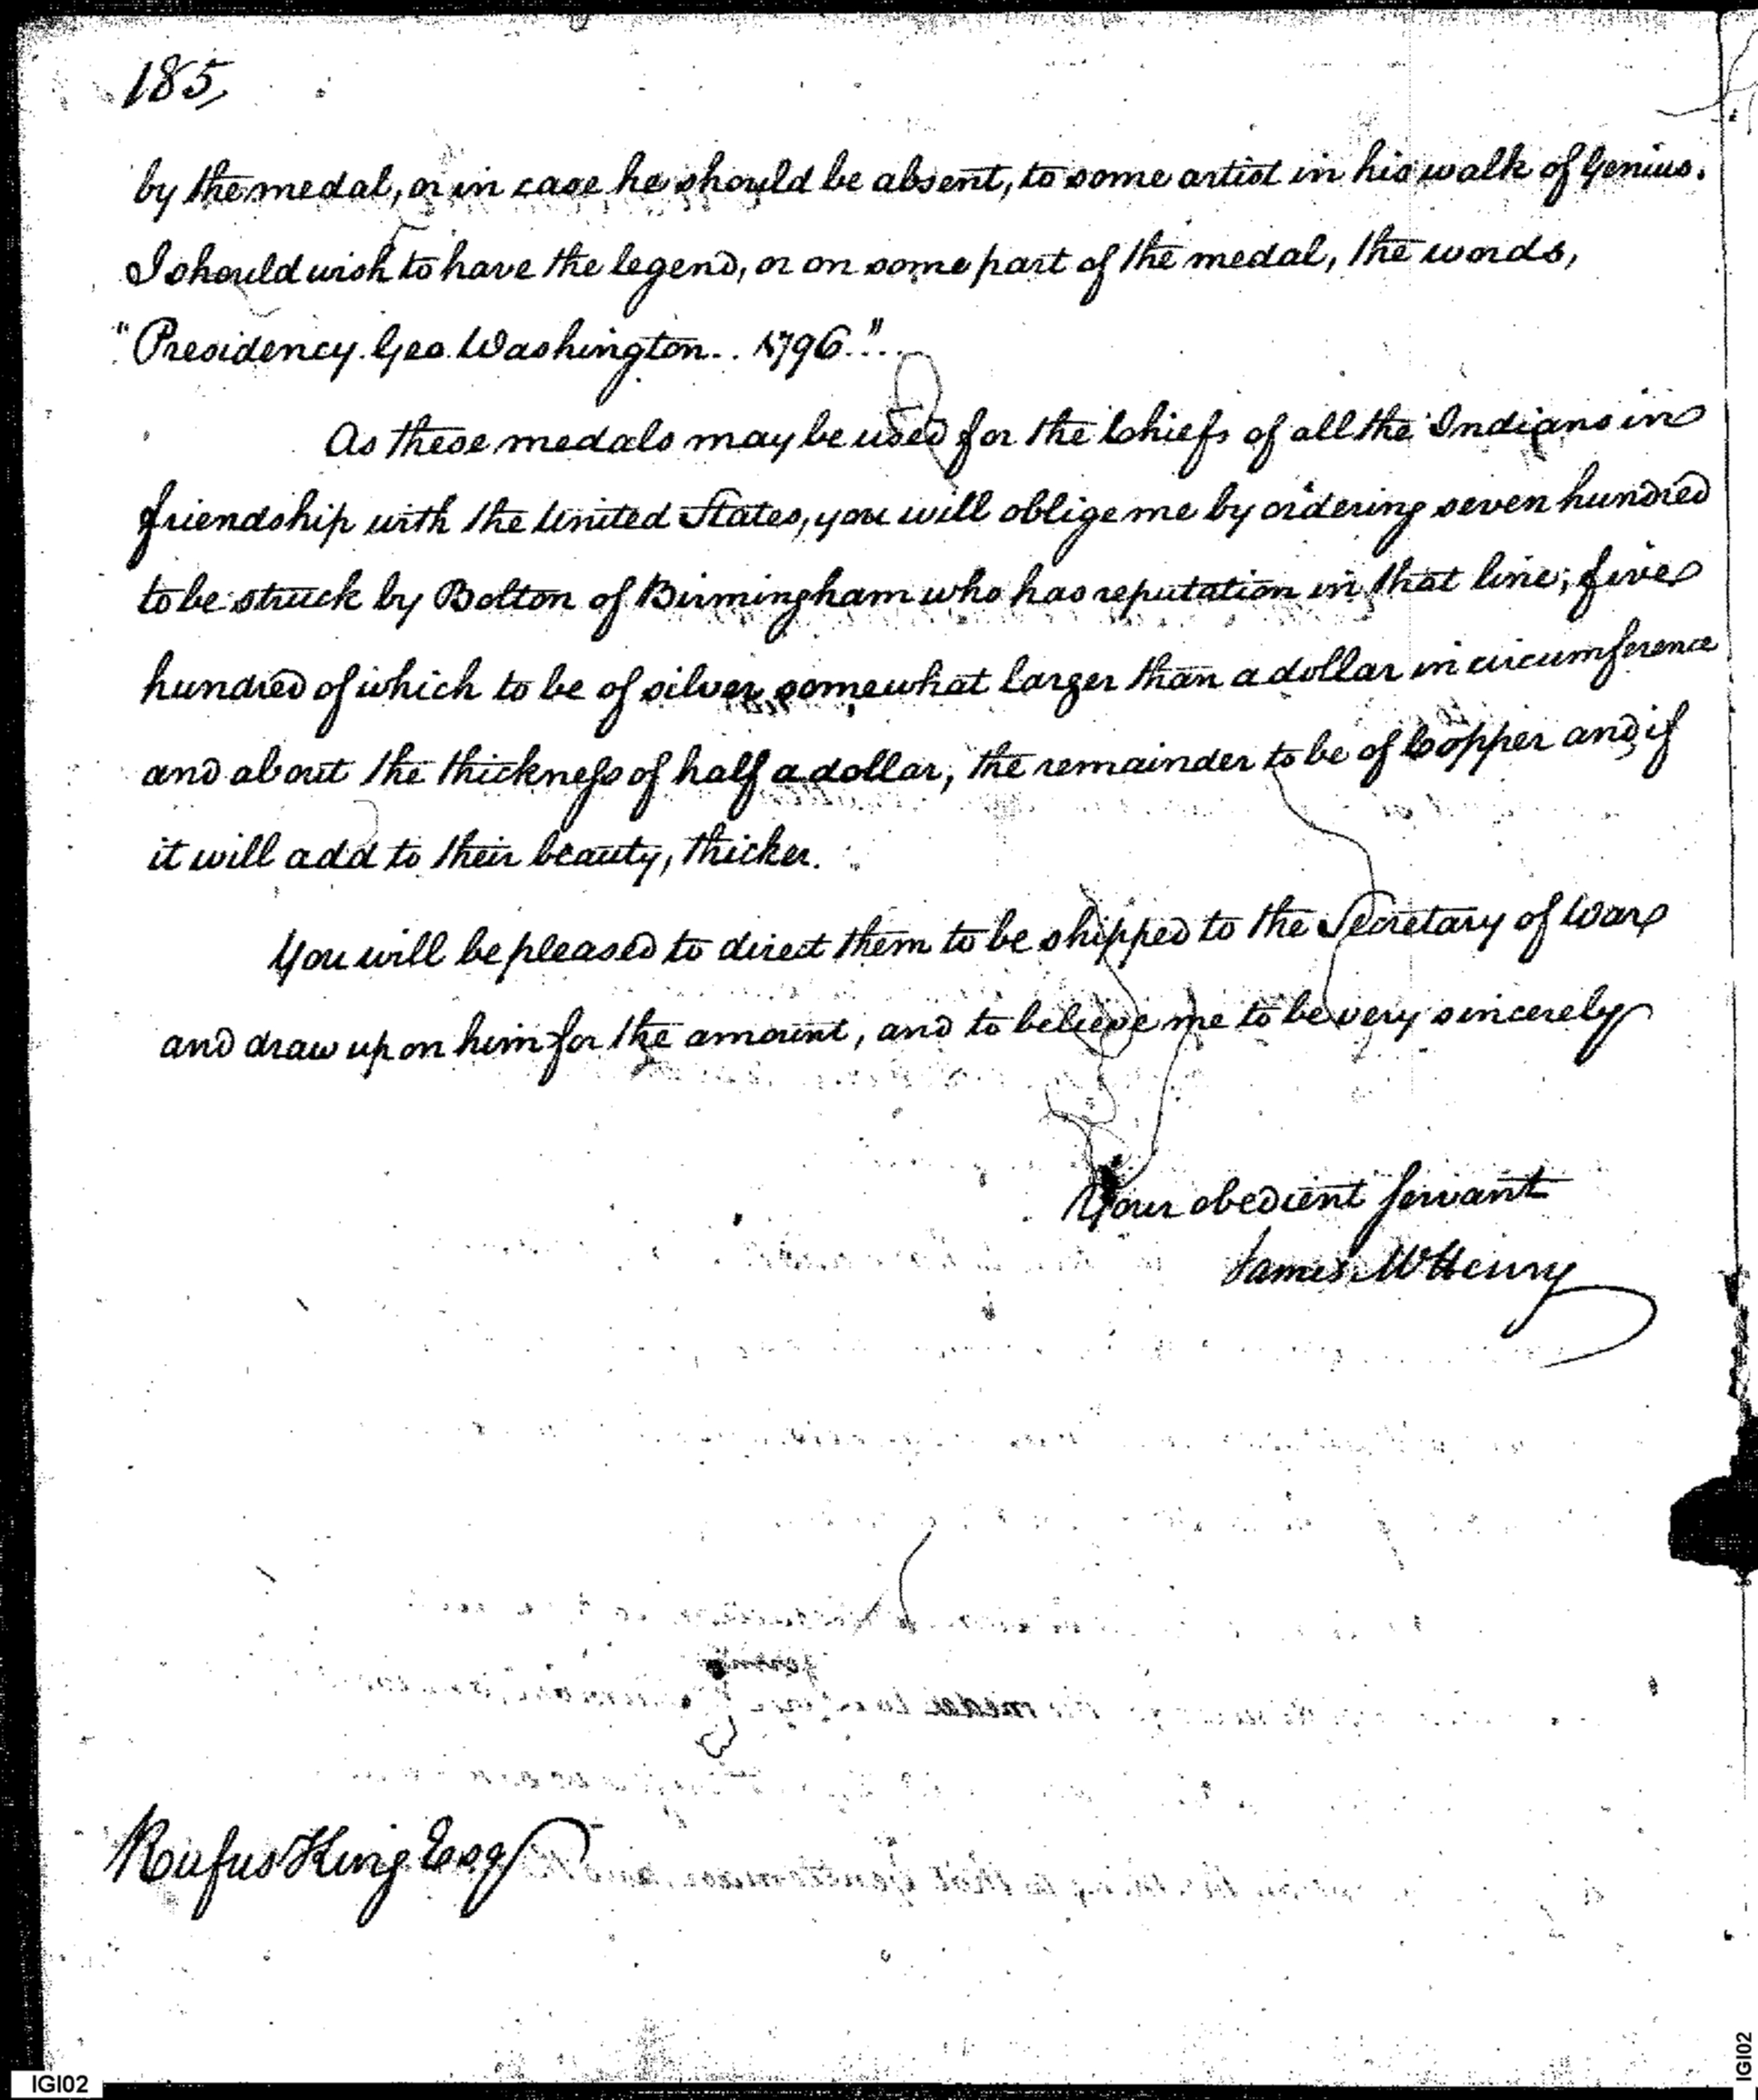 185,
by the medal, or in case he should be absent, to some artist in his walk of Genius.
I should wish to have the legend, or on some part of the medal, the words,
"Presidency. Geo. Washington.. 1796."..
As these medals may be used for the Chiefs of all the Indians in
friendship with the United States, you will oblige me by ordering seven hundred
to be struck by Bolton of Birmingham who has reputation in that line; five
hundred of which to be of silver somewhat larger than a dollar in circumference
and about the thickness of half a dollar, the remainder to be of Copper and if
it will add to their beauty, thicker.
You will be pleased to direct them to be shipped to the Secretary of War
and draw upon him for the amount, and to believe me to be very sincerely
Your obedient Servant
James McHenry
Rufus King Esqr
IGI02
IGI02